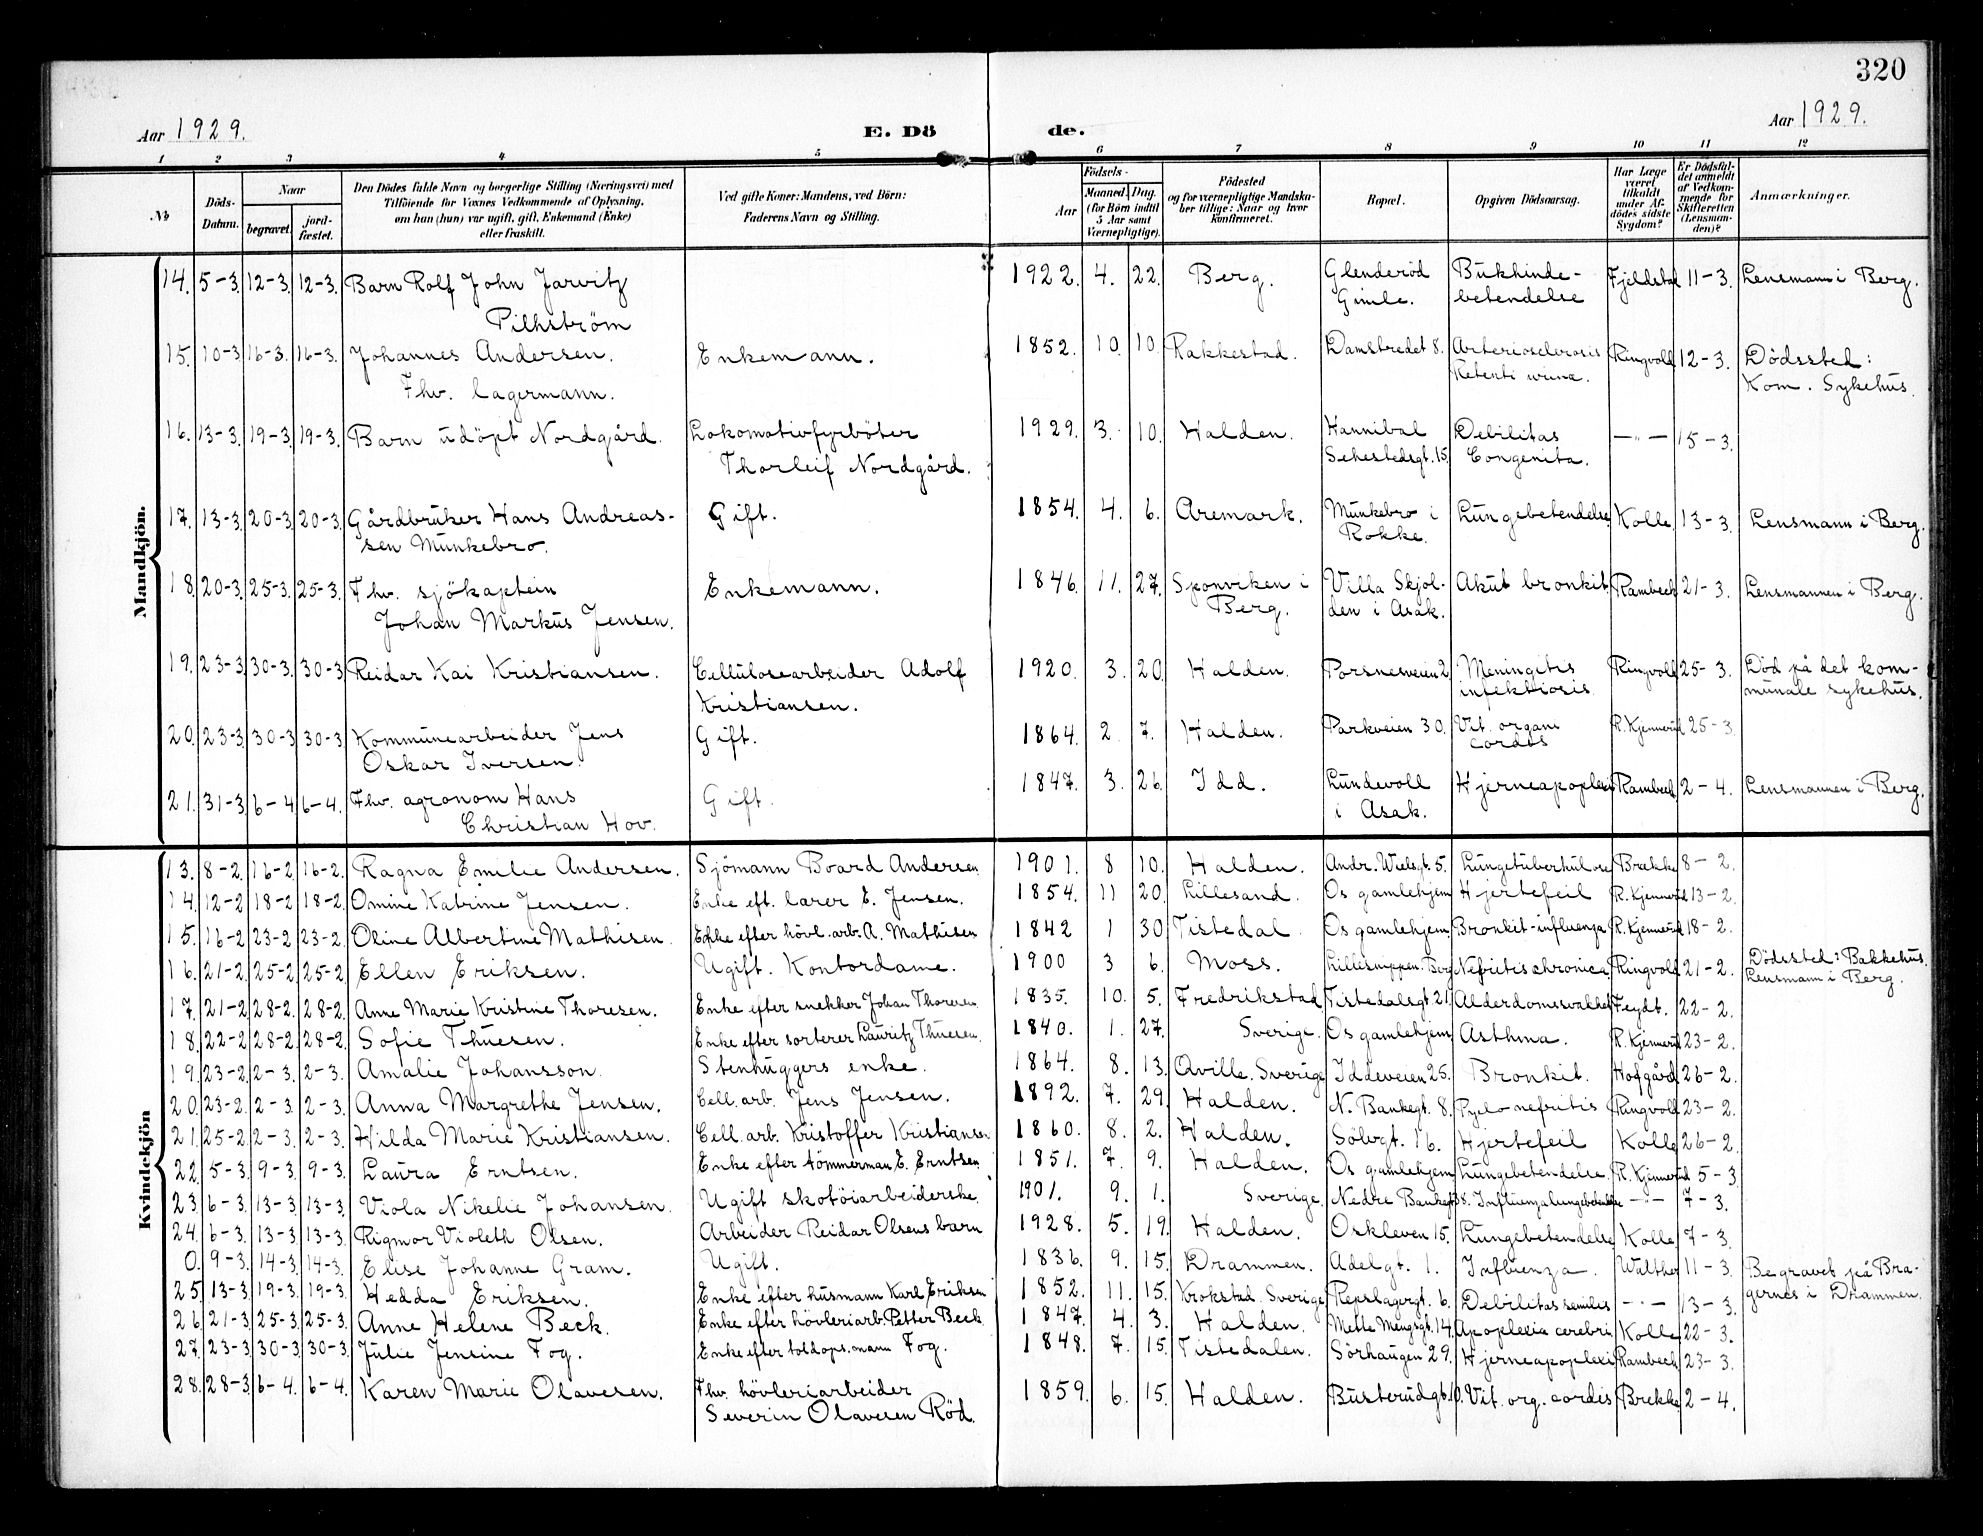 320
Aar 1929.
E. Dö
de.
Aar 1929.
1 2 3 4 5 6 7 8 9 10 11 12
No
Döds-Datum.
Naar
begravet.
jord-fæstet.
Den Dödes fulde Navn og borgerlige Stilling (Næringsvei) med
Tilföiende for Voxnes Vedkommende af Oplysning,
om han (hun) var ugift, gift, Enkemand (Enke)
eller fraskilt.
Ved gifte Koner: Mandens, ved Börn:
Faderens Navn og Stilling.
Födsels-
Aar
Maaned. Dag.
(for Börn indtil
5 Aar samt
Værnepligtige).
Födested
og for værnepligtige Mandska-
ber tillige: Naar og hvor
konfirmeret.
Bopæl.
Opgiven Dödsaarsag.
Har Læge
været
tilkaldt
under Af-
dödes sidste
Sygdom?
Er Dödsfal-
det anmeldt
af Vedkom-
mende for
Skifteretten
(Lensman-
den)?
Anmærkninger.
Mandkjön.
14. 5-3. 12-3. 12-3. Barn Rolf John Jarvitz 1922. 4. 22. Berg. Glenderöd Bukhinde- Fjeldstad 11-3. Lensmann i Berg.
Pilhström Gimle. betendelse
15. 10-3 16-3. 16-3. Johannes Andersen. Enkemann. 1852. 10. 10. Rakkestad. Damstredet 8. Arteriosclerosis Ringvold 12-3. Dödssted:
Fhv. lagermann. Retenti urinæ. Kom. Sykehus.
16. 13-3. 19-3. 19-3. Barn udöpt Nordgård. Lokomotivfyrböter 1929. 3. 10. Halden. Hannibal Debilitas —"— 15-3.
Thorleif Nordgård. Sehestedsgt. 15. Congenita.
17. 13-3. 20-3. 20-3. Gårdbruker Hans Andreas- Gift. 1854. 4. 6. Aremark. Munkebro i Lungebetendelse Kolle 13-3. Lensmann i Berg.
sen Munkebro. Rokke.
18. 20-3. 25-3. 25-3. Fhv. sjökaptein Enkemann. 1846. 11. 27. Sponviken i Villa Skjol- Akut bronkit Rambech 21-3. Lensmannen i Berg.
Johan Markus Jensen. Berg. den i Asak.
19. 23-3. 30-3. 30-3 Reidar Kai Kristiansen. Cellulosearbeider Adolf 1920. 3. 20. Halden. Porsnesveien 2 Meningitis Ringvold 25-3. Död på det kom-
Kristiansen. infektiosis. munale sykehus.
20. 23-3 30-3 30-3 Kommunearbeider Jens Gift. 1864. 2. 7. Halden. Parkveien 30. Vit. organi R. Kjennerud 25-3.
Oskar Iversen. cordis
21. 31-3 6-4 6-4. Fhv. agronom Hans Gift. 1847. 3. 26. Idd. Lundevoll Hjerneapoplexi Rambech 2-4. Lensmannen i Berg.
Christian Hov. i Asak.
Kvindekjön
13. 8-2. 16-2. 16-2. Ragna Emilie Andersen. Sjömann Board Andersen 1901. 8 10. Halden. Andr. Wielsgt. 5. Brekke 8-2.
14. 12-2 18-2 18-2. Omine Katrine Jensen. Enke eft. lærer E. Jensen. 1854. 11 20. Lillesand. Os gamlehjem Hjertefeil R. Kjennerud 13-2.
15. 16-2 23-2 23-2. Oline Albertine Mathisen. Enke efter hövl. arb. A. Mathisen 1842 1 30 Tistedal. Os gamlehjem. Bronkit-influenza R. Kjennerud 18-2.
16. 21-2. 25-2 25-2 Ellen Eriksen. Ugift. Kontordame. 1900 3 6. Moss. Berg Nefritis chronica Ringvold 21-2. Dödssted: Bakkehus.
Lensmann i Berg.
17. 21-2 28-2. 28-2. Anne Marie Kristine Thoresen. Enke efter snekker Johan Thoresen. 1835. 10. 5. Fredrikstad Tistedalsgt. 21. Alderdomssvakhet Feydt. 22-2.
18. 22-2 28-2. 28-2. Sofie Thuesen. Enke efter sorterer Lauritz Thuesen. 1840. 1. 27. Sverige. Os gamlehjem Asthma. R. Kjennerud 23-2.
19. 23-2 2-3. 2-3. Amalie Johansson. Stenhuggers enke. 1864. 8. 13. Qville. Sverige Iddeveien 25. Bronkit. Hofgård 26-2.
20. 23-2. 2-3. 2-3. Anna Margrethe Jensen. Cell. arb. Jens Jensen. 1892. 7. 29. Halden. N. Bankegt. 8. Pyelo nefritis Ringvold 23-2.
21. 25-2. 2-3. 2-3. Hilda Marie Kristiansen. Cell. arb. Kristoffer Kristiansen 1860. 8. 2. Halden. Sölvgt. 16. Hjertefeil Kolle 26-2.
22. 5-3 9-3. 9-3. Laura Erntsen. Enke efter tömmerman E. Erntsen 1851. 7. 9. Halden. Os gamlehjem Lungebetendelse. R. Kjennerud 5-3
23. 6-3 13-3. 13-3. Viola Nikelie Johansen. Ugift skotöiarbeiderske. 1901. 9. 1. Sverige. Nedre Bankegt 38. Influenzalungebetendelse —"— 7-3.
24. 6-3. 13-3 13-3. Rigmor Violeth Olsen. Arbeider Reidar Olsens barn 1928. 5. 19. Halden. Oskleven 15. Lungebetendelse Kolle 7-3.
0. 9-3. 14-3. 14-3. Elise Johanne Gram. Ugift. 1836. 9. 15. Drammen. Adelgt. 1. Influenza. 11-3. Begravet på Bra-
gernes i Drammen.
25. 13-3. 19-3. 19-3. Hedda Eriksen. Enke efter husmann Karl Eriksen 1852. 11. 15. Krokstad. Sverige Repslagergt. 6. Debilitas senilis —"— 13-3.
26. 21-3 25-3. 25-3. Anne Helene Beck. Enke efter hövleriarb. Petter Beck. 1847. 4. 3. Halden. Mette Mengsgt. 14. Apoplexia cerebri Kolle 22-3.
27. 23-3 30-3 30-3. Julie Jensine Fog. Enke efter toldops. mann Fog. 1848. 7. 15. Tistedalen. Sörhaugen 29. Hjerneapoplexi Rambech 23-3.
28. 28-3. 6-4. 6-4. Karen Marie Olavesen. Fhv. hövleriarbeider 1859. 6. 15. Halden. Busterudgt. 10. Vit. org. cordis Brekke 2-4.
Severin Olavesen Röd.